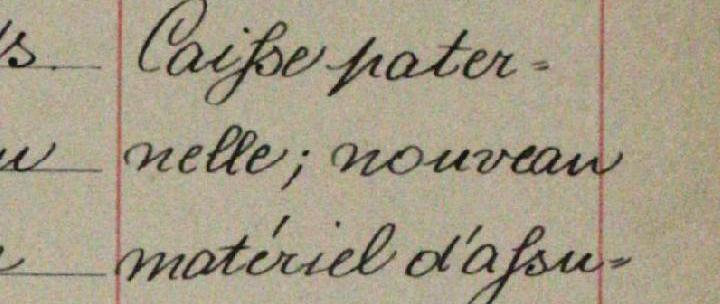 s Caisse pater-
u nelle; nouveau
matériel d'assu-